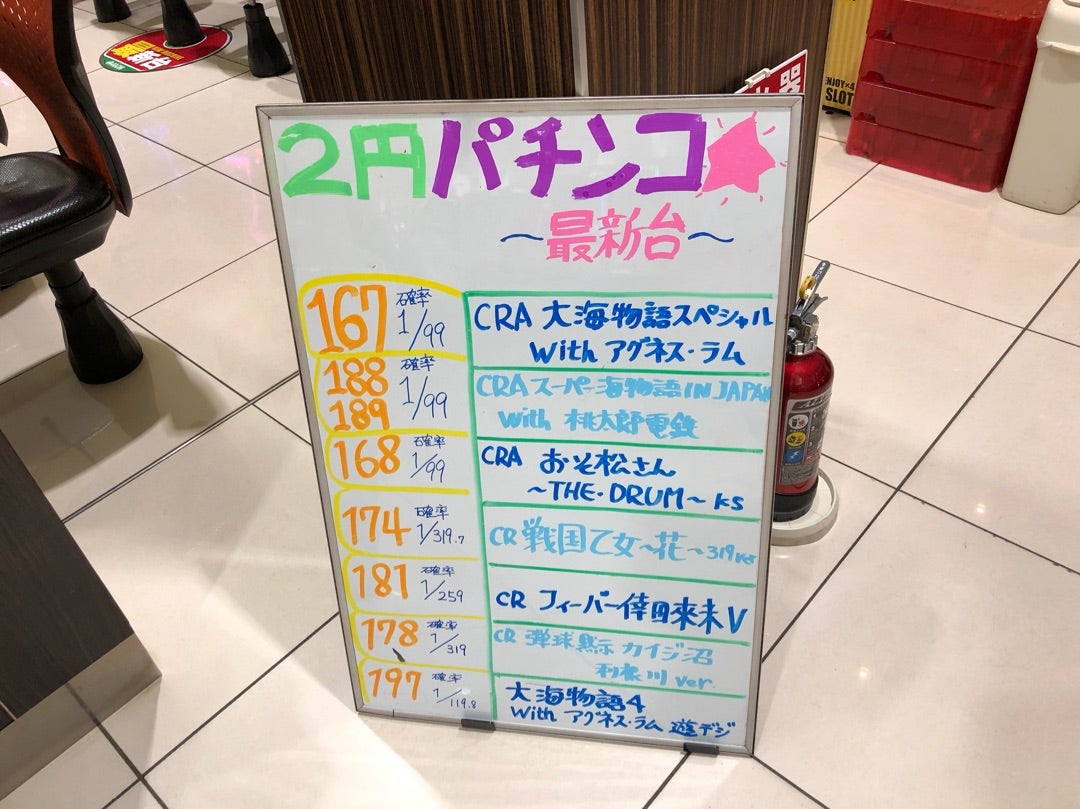 2円パチンコ
〜最新台〜
167 確率 1/99 CRA 大海物語スペシャル
With アグネス・ラム
188 189 確率 1/99 CRA スーパー海物語 IN JAPAN
With 桃太郎電鉄
168 確率 1/99 CRA おそ松さん
〜THE・DRUM〜 KS
174 確率 1/319.7 CR 戦国乙女〜花〜319ver
181 確率 1/259 CR フィーバー倖田來未V
178 確率 1/319 CR 弾球黙示カイジ沼
利根川 ver.
197 確率 1/119.8 大海物語4
With アグネス・ラム 遊デジ
最新台
ENJOY×4
SLOT